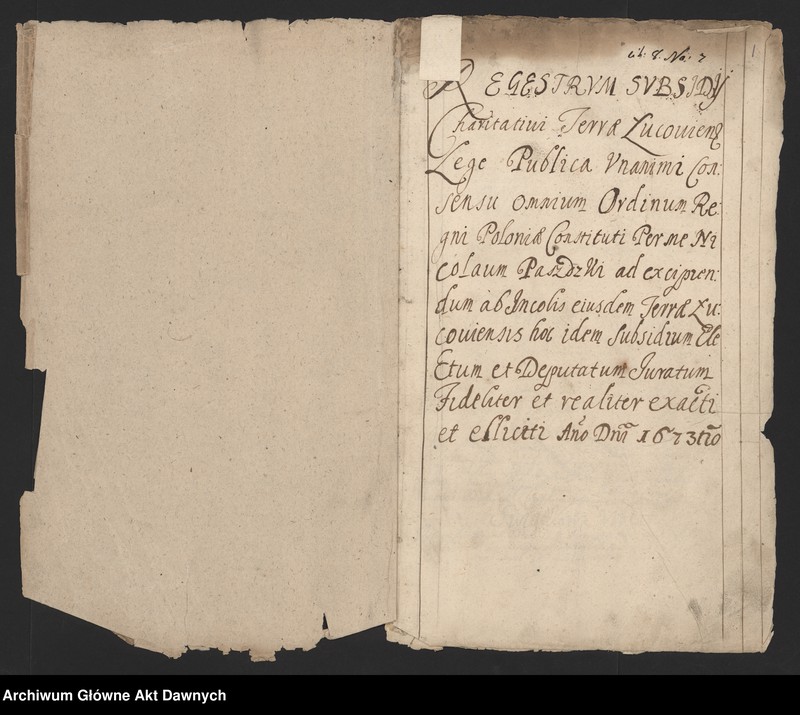 Lib: 7. No: 2
1
REGESTRVM SVBSIDY
Charitatiui Terræ Lucouienẛ
Lege Publica Vnanimi Con:
sensu omnium Ordinum Re:
gni Poloniæ Constituti Per me Ni
colaum PaszDzKi ad excipien:
dum ab Incolis eiusdem Terræ Lu:
couiensis hoc idem Subsidium Ele
Ctum et Desputatum Iuratum
Fideliter et realiter exacti
et elliciti Año Dñi 1673tio
Archiwum Główne Akt Dawnych